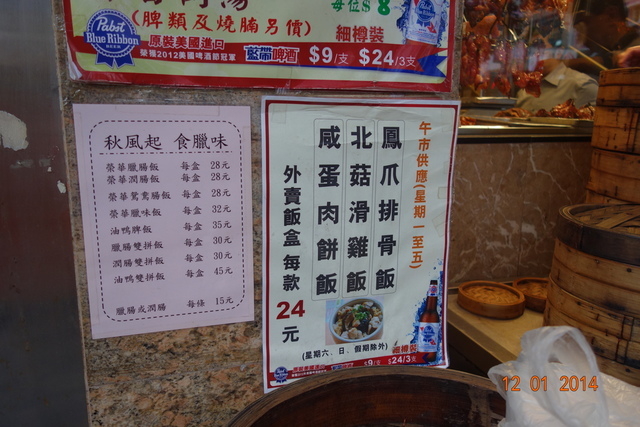 每位$8
(脾類及燒腩另價)
細樽裝
Pabst
Blue Ribbon
原裝美國進口
榮獲2012美國啤酒節冠軍
藍帶啤酒
$9/支
$24/3支
秋風起 食臘味
榮華臘腸飯 每盒 28元
榮華潤腸飯 每盒 28元
榮華鴛鴦腸飯 每盒 28元
榮華臘味飯 每盒 32元
油鴨脾飯 每盒 35元
臘腸雙拼飯 每盒 30元
潤腸雙拼飯 每盒 30元
油鴨雙拼飯 每盒 45元
臘腸或潤腸 每條 15元
午市供應(星期一至五)
鳳爪排骨飯
北菇滑雞飯
咸蛋肉餅飯
外賣飯盒每款24元
(星期六、日、假期除外)
細樽裝
$9/支 $24/3支
12 01 2014